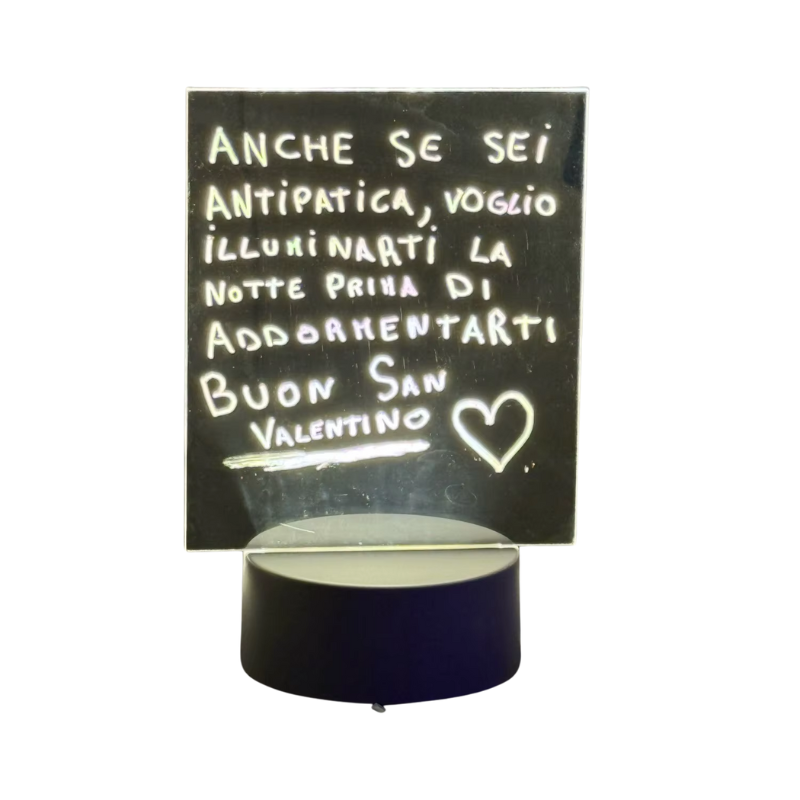 ANCHE SE SEI
ANTIPATICA, VOGLIO
ILLUMINARTI LA
NOTTE PRIMA DI
ADDORMENTARTI
BUON SAN
VALENTINO